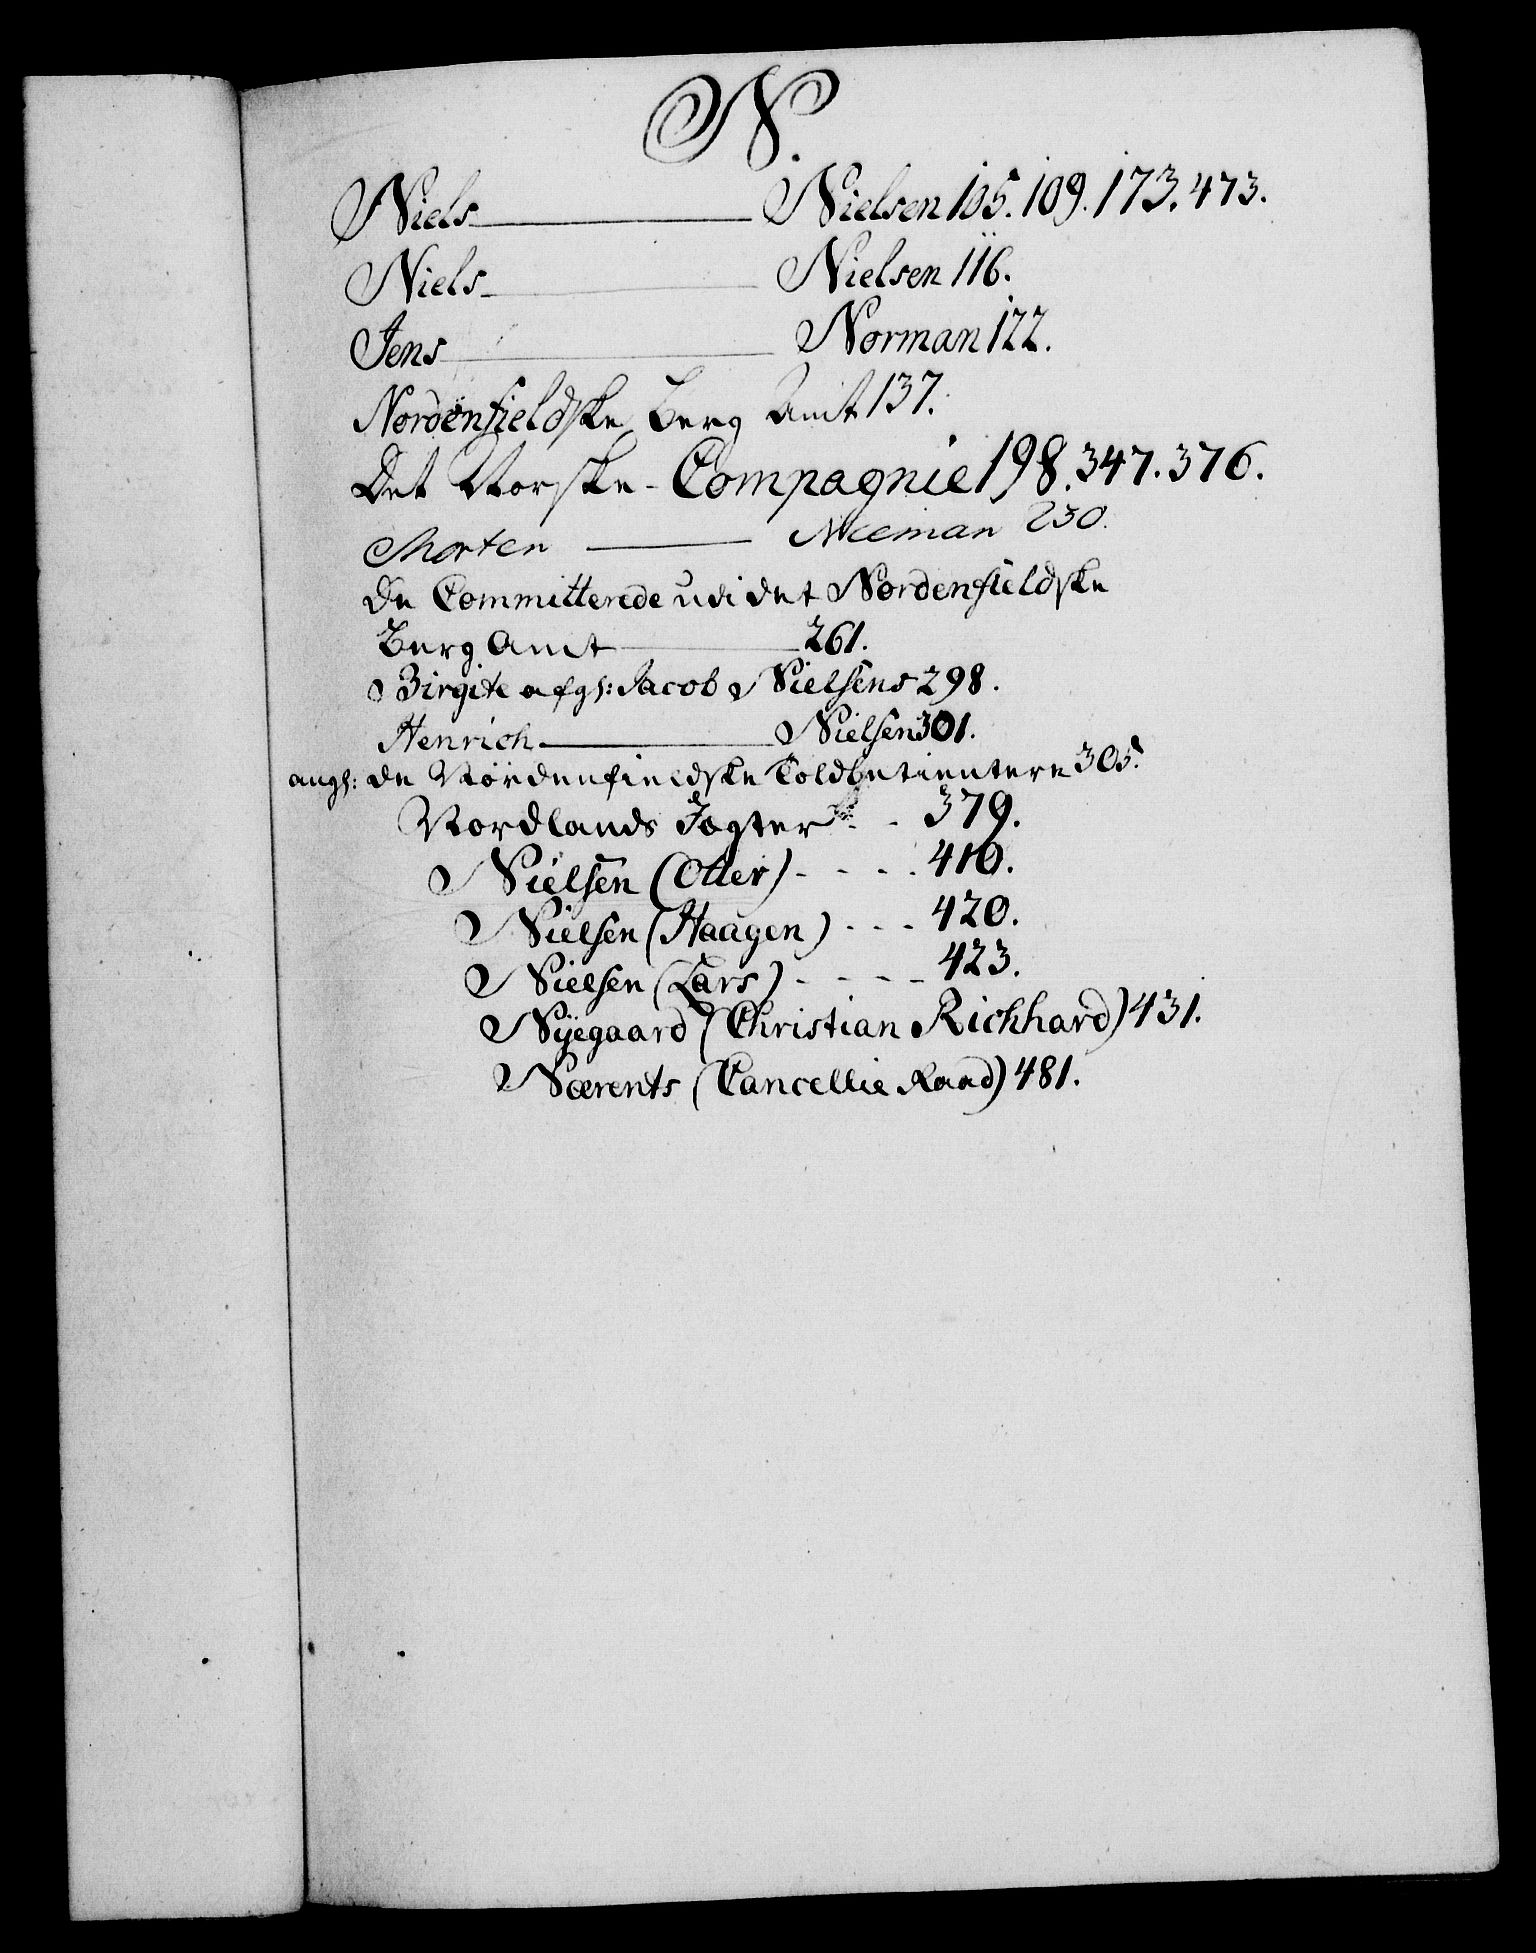 N.
Niels ——— Nielsen 105. 109. 173. 473.
Niels ——— Nielsen 116.
Jens ——— Norman 122.
Nordenfieldske Berg Amt 137.
Det Norske Compagnie 198. 347. 376.
Morten ——— Neeman 230.
De Committerede udi det Nordenfieldske
Berg Amt ——— 261.
Birgite afgl: Jacob Nielsens 298.
Henrich ——— Nielsen 301.
angl: de Nordenfieldske Toldbetientere 305.
Nordlands Jagter - - 379.
Nielsen (Otter) - - - - 410.
Nielsen (Haagen) - - - 420.
Nielsen (Lars) - - - - 423.
Nyegaard (Christian Richhard) 431.
Nærents (Cancellie Raad) 481.